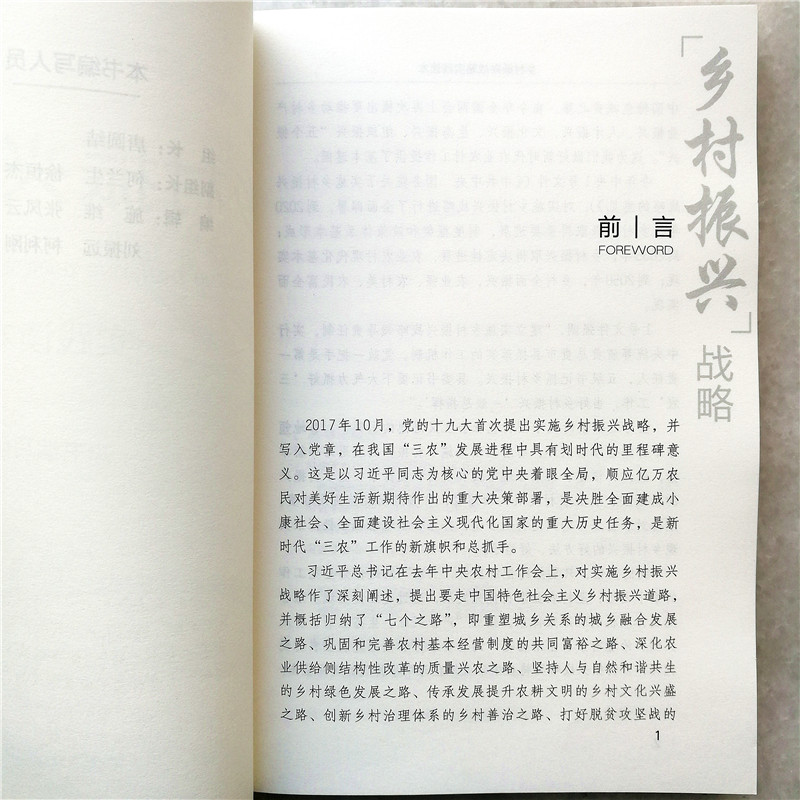 「乡村振兴」战略
前 | 言
FOREWORD
2017年10月，党的十九大首次提出实施乡村振兴战略，并
写入党章，在我国“三农”发展进程中具有划时代的里程碑意
义。这是以习近平同志为核心的党中央着眼全局，顺应亿万农
民对美好生活新期待作出的重大决策部署，是决胜全面建成小
康社会、全面建设社会主义现代化国家的重大历史任务，是新
时代“三农”工作的新旗帜和总抓手。
习近平总书记在去年中央农村工作会上，对实施乡村振兴
战略作了深刻阐述，提出要走中国特色社会主义乡村振兴道路，
并概括归纳了“七个之路”，即重塑城乡关系的城乡融合发展
之路、巩固和完善农村基本经营制度的共同富裕之路、深化农
业供给侧结构性改革的质量兴农之路、坚持人与自然和谐共生
的乡村绿色发展之路、传承发展提升农耕文明的乡村文化兴盛
之路、创新乡村治理体系的乡村善治之路、打好脱贫攻坚战的
1